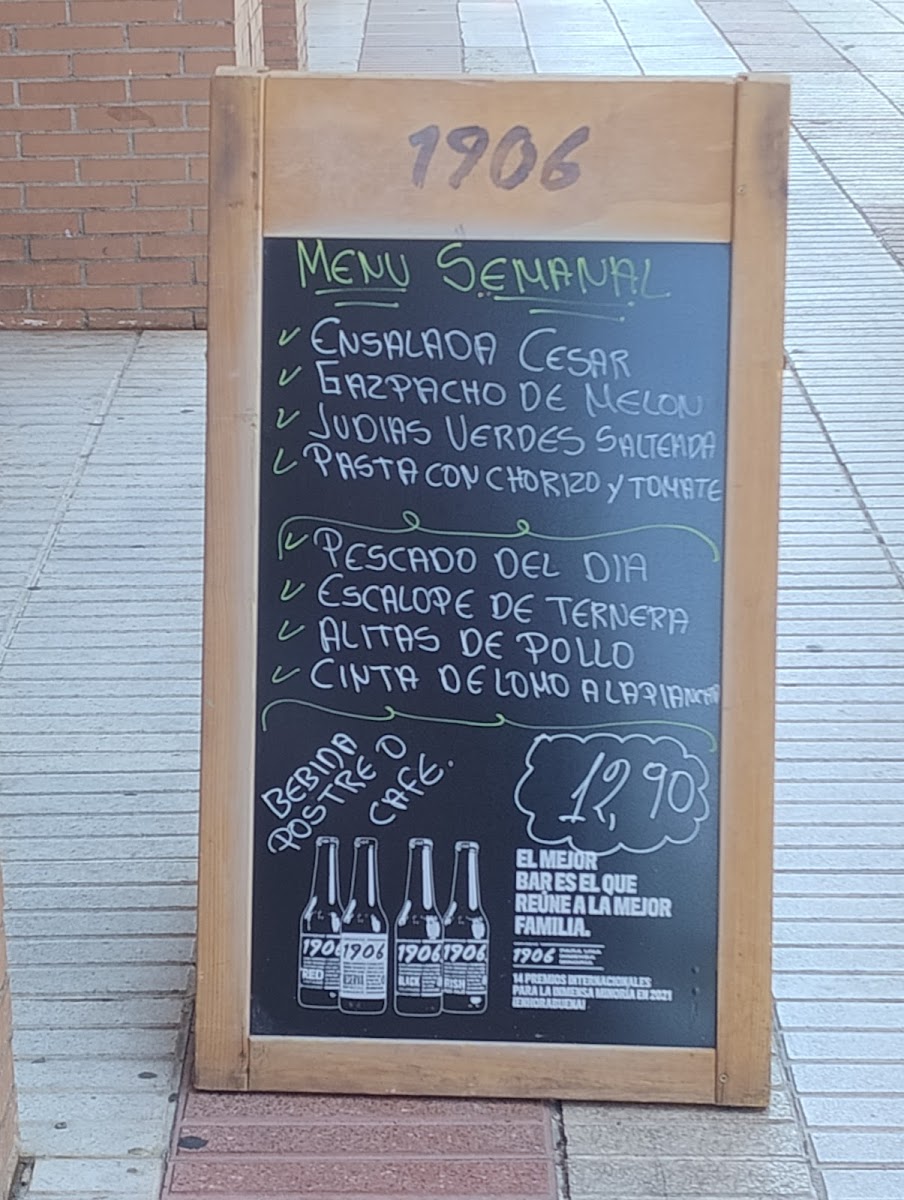 1906
MENU SEMANAL
ENSALADA CESAR
GAZPACHO DE MELON
JUDIAS VERDES SALTEADA
PASTA CON CHORIZO Y TOMATE
PESCADO DEL DIA
ESCALOPE DE TERNERA
ALITAS DE POLLO
CINTA DE LOMO A LA PLANCHA
BEBIDA
POSTRE O
CAFE.
12,90
EL MEJOR
BAR ES EL QUE
REÚNE A LA MEJOR
FAMILIA.
1906
14 PREMIOS INTERNACIONALES
PARA LA INMENSA MINORÍA EN 2021
1906 1906 1906 1906
RED BLACK IRISH